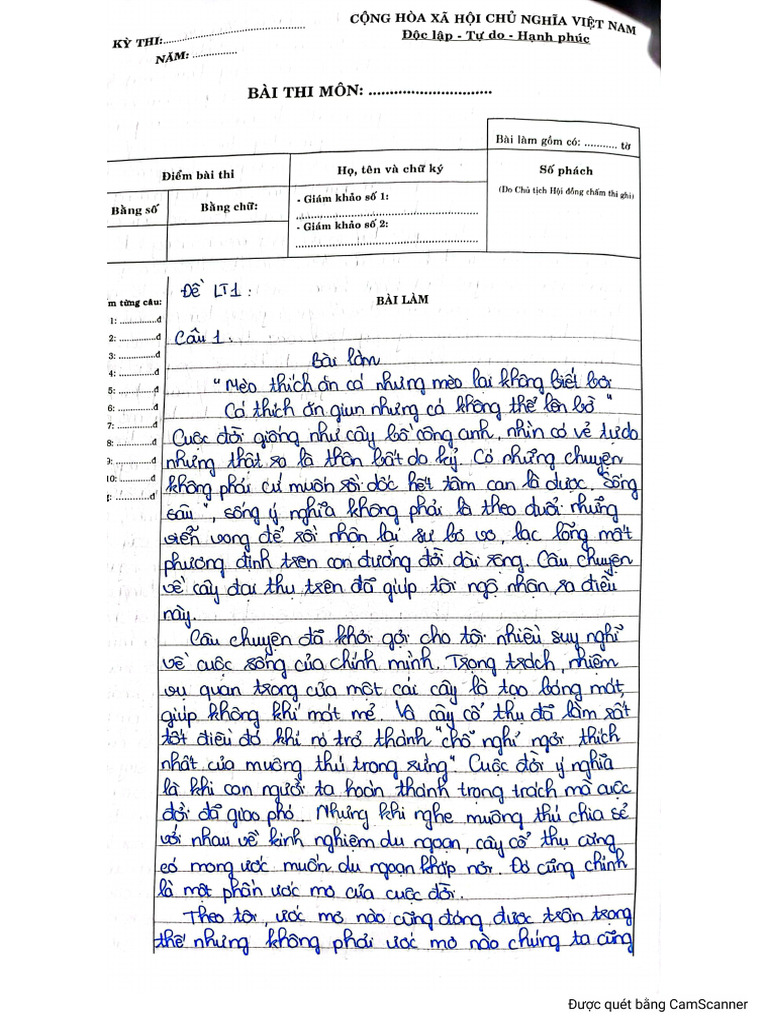 CỘNG HÒA XÃ HỘI CHỦ NGHĨA VIỆT NAM
Độc lập - Tự do - Hạnh phúc
KỲ THI:
NĂM:
BÀI THI MÔN:
Bài làm gồm có: ........... tờ
Điểm bài thi
Họ, tên và chữ ký
Số phách
(Do Chủ tịch Hội đồng chấm thi ghi)
Bằng số
Bằng chữ:
- Giám khảo số 1:
- Giám khảo số 2:
Đề LT1:
BÀI LÀM
m từng câu:
1: ............đ
2: ............đ
3: ............đ
4: ............đ
5: ............đ
6: ............đ
7: ............đ
8: ............đ
9: ............đ
10: ............đ
Câu 1.
Bài làm
"Mèo thích ăn cá nhưng mèo lại không biết bơi
Cá thích ăn giun nhưng cá không thể lên bờ"
Cuộc đời giống như cây bồ công anh, nhìn có vẻ tự do
nhưng thật ra là thân bất do kỷ. Có những chuyện
không phải cứ muốn rồi dốc hết tâm can là được. "Sống
sâu", sống ý nghĩa không phải là theo đuổi những
viển vông để rồi nhận lại sự bơ vơ, lạc lõng mất
phương định trên con đường đời dài rộng. Câu chuyện
về cây đại thụ trên đã giúp tôi ngộ nhận ra điều
này.
Câu chuyện đã khơi gợi cho tôi nhiều suy nghĩ
về cuộc sống của chính mình. Trọng trách, nhiệm
vụ quan trọng của một cái cây là tạo bóng mát,
giúp không khí mát mẻ. Và cây cổ thụ đã làm rất
tốt điều đó khi nó trở thành "chỗ nghỉ ngơi thích
nhất của muông thú trong rừng". Cuộc đời ý nghĩa
là khi con người ta hoàn thành trọng trách mà cuộc
đời đã giao phó. Nhưng khi nghe muông thú chia sẻ
với nhau về kinh nghiệm du ngoạn, cây cổ thụ cũng
có mong ước muốn du ngoạn khắp nơi. Đó cũng chính
là một phần ước mơ của cuộc đời.
Theo tôi, ước mơ nào cũng đáng được trân trọng
thế nhưng không phải ước mơ nào chúng ta cũng
Được quét bằng CamScanner